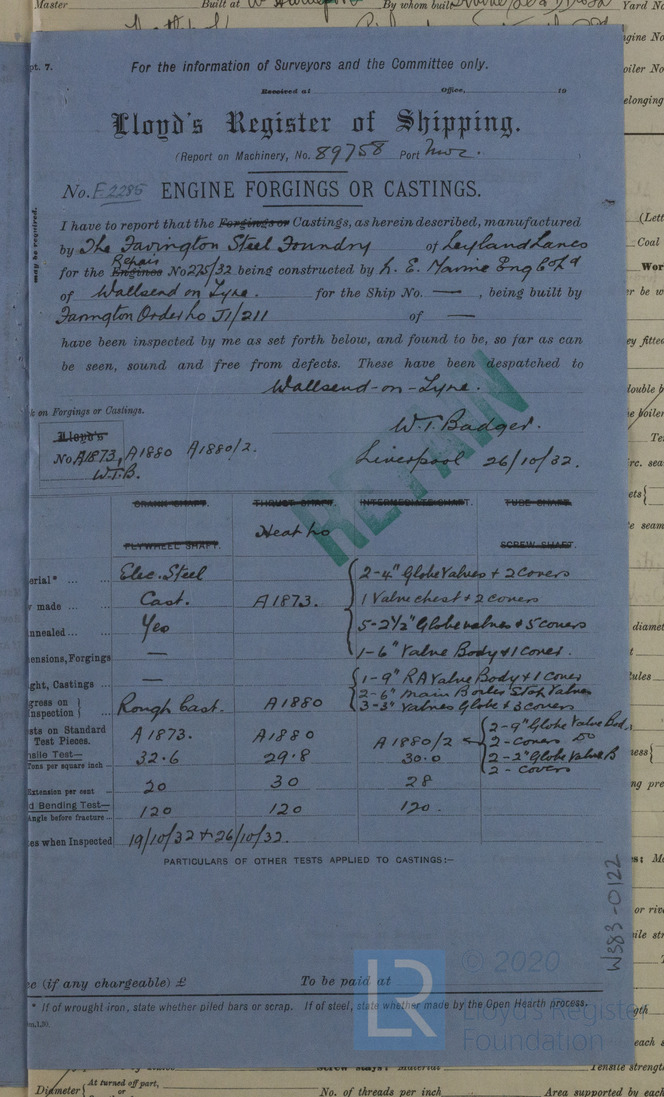 Master Built at By whom built Yard No
pt. 7.
For the information of Surveyors and the Committee only.
Received at Office, 19
Lloyd's Register of Shipping.
(Report on Machinery, No. 89758 Port Nwc. )
No. F.2285 ENGINE FORGINGS OR CASTINGS.
may be required.
I have to report that the Forgings or Castings, as herein described, manufactured
by The Farington Steel Foundry of Leyland Lancs
Repair
for the Engines No 275/32 being constructed by N. E. Marine Eng Co Ltd
of Wallsend on Tyne. for the Ship No. — , being built by
Farington Order No J1/211 of —
have been inspected by me as set forth below, and found to be, so far as can
be seen, sound and free from defects. These have been despatched to
Wallsend-on-Tyne.
k on Forgings or Castings.
RETAIN
W.T. Badger.
Lloyd's
No. A1873, A1880 A1880/2.
W.T.B.
Liverpool 26/10/32.
CRANK SHAFT. THRUST SHAFT. INTERMEDIATE SHAFT. TUBE SHAFT.
Heat No
FLYWHEEL SHAFT. SCREW SHAFT.
erial* ... ... Elec. Steel 2-4" Globe Valves + 2 covers
made ... ... Cast. A1873. 1 Valve chest + 2 covers
nnealed ... ... Yes 5-2½" Globe valves + 5 covers
ensions, Forgings — 1-6" Valve Body + 1 cover.
ght, Castings ... — 1-9" RA Valve Body + 1 cover
2-6" Main Boiler Stop Valves
gress on Inspection } Rough Cast. A1880 3-3" Valves Globe + 3 covers
sts on Standard Test Pieces. A1873. A1880 A1880/2 2-9" Globe Valve Bod.
2-Covers Do
nsile Test— Tons per square inch 32.6 29.8 30.0 2-2" Globe Valve B
2-Covers
Extension per cent 20 30 28
d Bending Test— Angle before fracture 120 120 120.
es when Inspected 19/10/32 + 26/10/32.
PARTICULARS OF OTHER TESTS APPLIED TO CASTINGS:—
W383-0122
e (if any chargeable) £ To be paid at
* If of wrought iron, state whether piled bars or scrap. If of steel, state whether made by the Open Hearth process.
© 2020
LR
Lloyd's Register
Foundation
Diameter { At turned off part, or No. of threads per inch Area supported by each